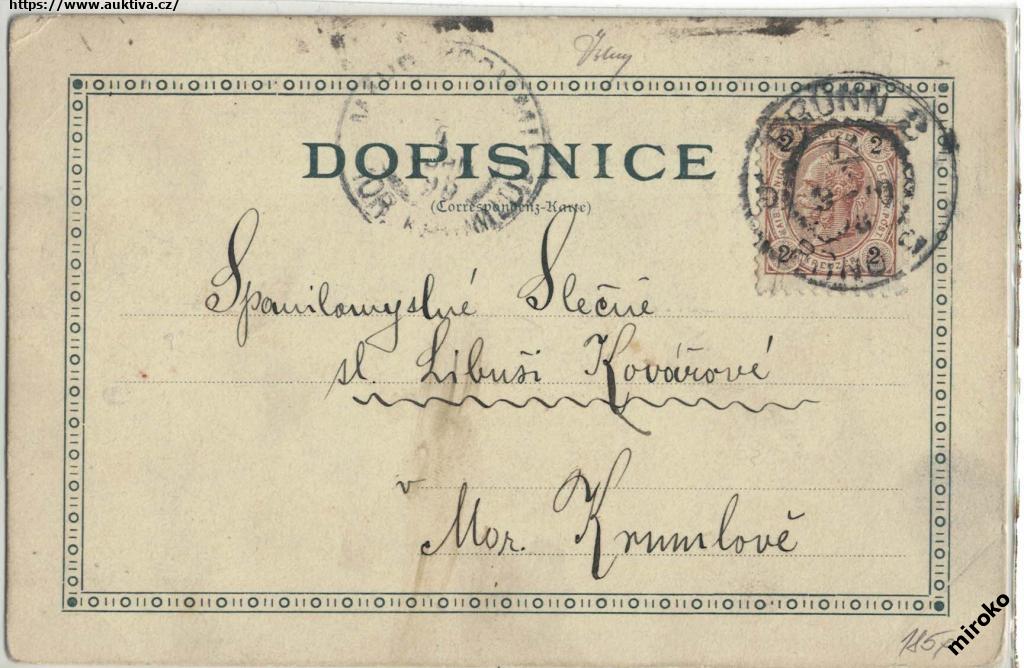 https://www.auktiva.cz/
DOPISNICE
(Correspondenz-Karte)
BRÜNN 2
2 2
2 2
Spanilomyslné Slečně
sl. Libuši Kovářové
v
Mor. Krumlově
185,-
miroko